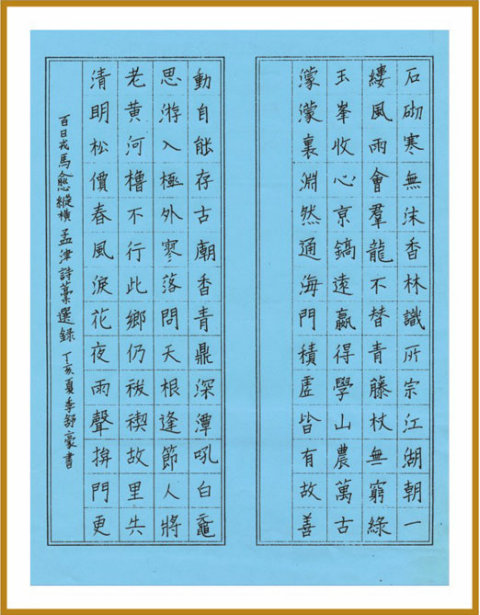 石砌寒無沫香林識所宗江湖朝一
縷風雨會羣龍不替青藤杖無窮綠
玉峯收心京鎬遠贏得學山農萬古
濛濛裏淵然通海門積虛皆有故善
動自能存古廟香青鼎深潭吼白黿
思游入極外寥落問天根逢節人將
老黄河櫓不行此鄉仍祓禊故里共
清明松價春風淚花夜雨聲揜門更
百日戎馬愈縱橫 孟津詩藁選錄 丁亥夏季舒豪書